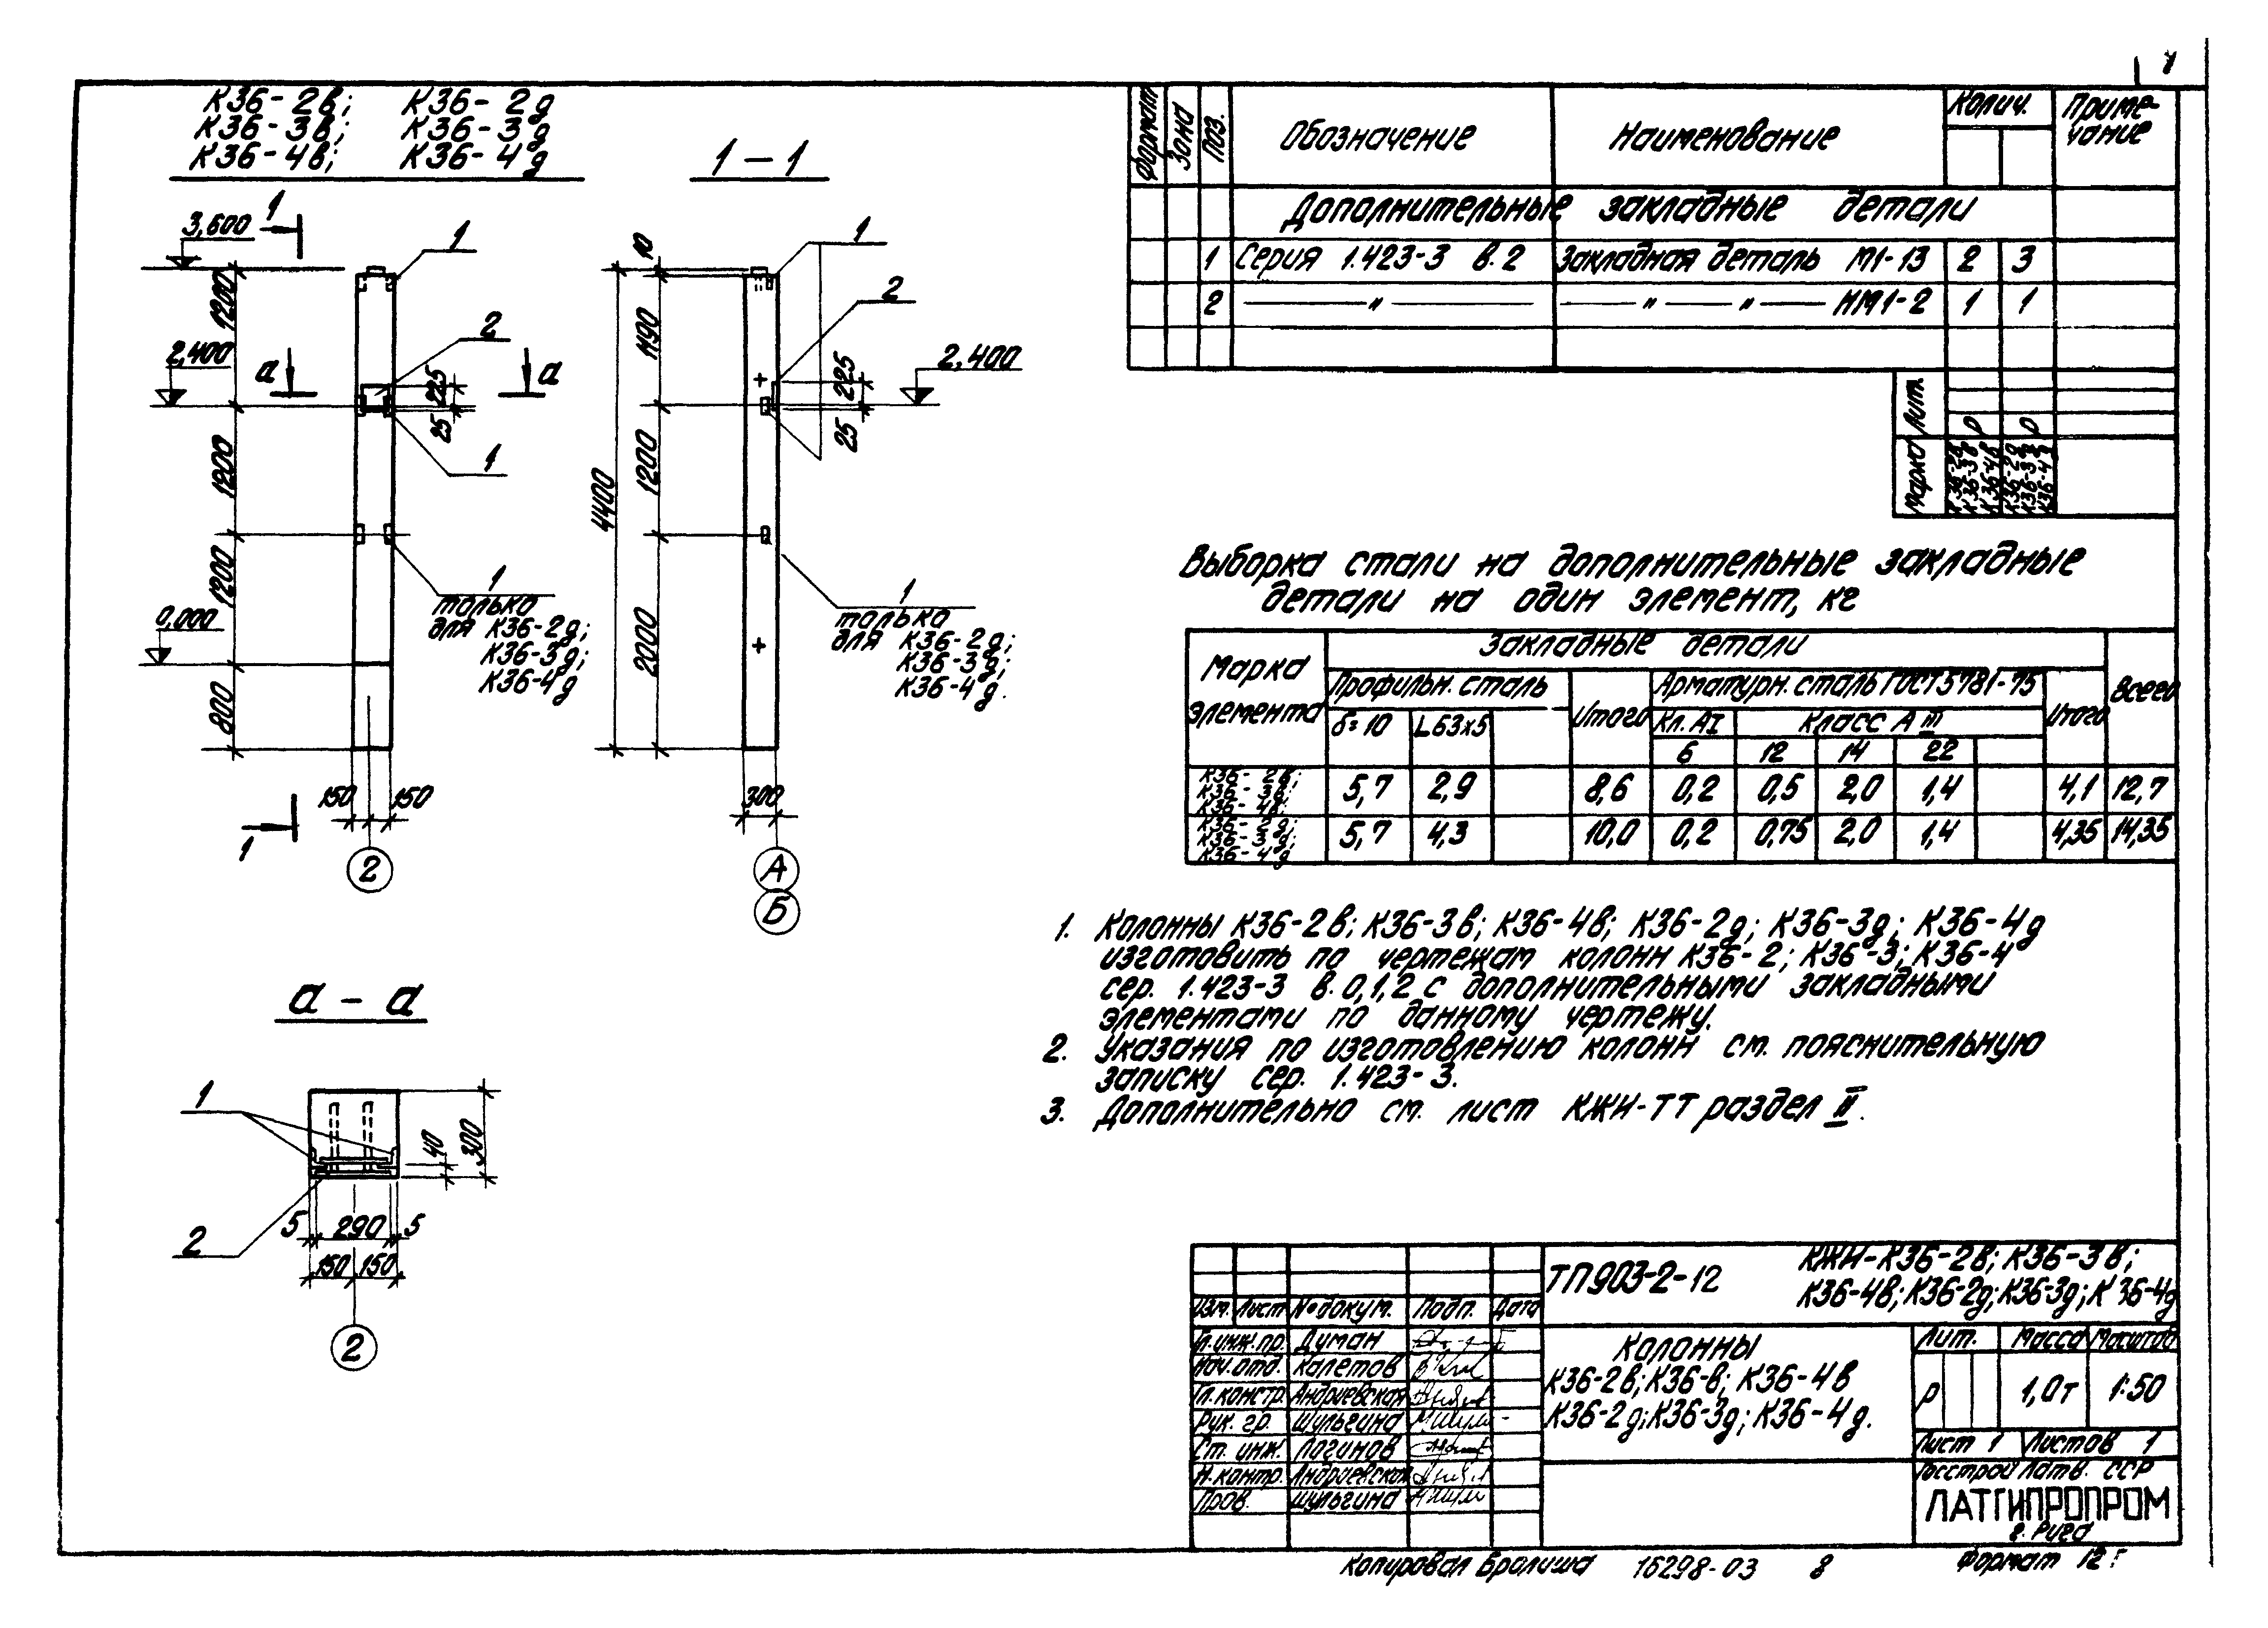 К36-2в; К36-2д
К36-3в; К36-3д
К36-4в; К36-4д
1-1
1
3,600
1
1200
2
2,400
а
а
225
25
1
1200
1200
1
только
для К36-2д;
К36-3д;
К36-4д
0,000
800
150 150
1
2
10
1
2
1190
225
2,400
25
4400
1200
1
только
для К36-2д;
К36-3д;
К36-4д.
2000
300
А
Б
а-а
1
40
300
2
5 290 5
150 150
2
Формат
Зона
Поз.
Обозначение
Наименование
Колич.
Приме-
чание
Дополнительные закладные детали
1 Серия 1.423-3 в.2 Закладная деталь М1-13 2 3
2 —— " —— —— " —— " —— НМ1-2 1 1
Лит.
Р Р
Марка
К36-2в
К36-3в
К36-4в
К36-2д
К36-3д
К36-4д
Выборка стали на дополнительные закладные
детали на один элемент, кг
Марка
элемента
Закладные детали
Всего
Профильн. сталь
Итого
Арматурн. сталь ГОСТ 5781-75
Итого
δ=10 L63x5
Кл. АI Класс АIII
6 12 14 22
К36-2в;
К36-3в;
К36-4в;
5,7 2,9 8,6 0,2 0,5 2,0 1,4 4,1 12,7
К36-2д;
К36-3д;
К36-4д
5,7 4,3 10,0 0,2 0,75 2,0 1,4 4,35 14,35
1. Колонны К36-2в; К36-3в; К36-4в; К36-2д; К36-3д; К36-4д
изготовить по чертежам колонн К36-2; К36-3; К36-4
сер. 1.423-3 в.0,1,2 с дополнительными закладными
элементами по данному чертежу.
2. Указания по изготовлению колонн см. пояснительную
записку сер. 1.423-3.
3. Дополнительно см. лист КЖИ-ТТ раздел II.
ТП903-2-12
КЖИ-К36-2в; К36-3в;
К36-4в; К36-2д; К36-3д; К36-4д
Изм. Лист № докум. Подп. Дата
Гл.инж.пр. Думан
Нач.отд. Калетов
Гл.констр. Андриевская
Рук. гр. Шульгина
Ст. инж. Логинов
Н.контр. Андриевская
Пров. Шульгина
Колонны
К36-2в; К36-в; К36-4в
К36-2д; К36-3д; К36-4д.
Лит. Масса Масштаб
Р 1,0т 1:50
Лист 1 Листов 1
Госстрой Латв. ССР
ЛАТГИПРОПРОМ
г. Рига
Копировал Бролиша 16298-03 8 Формат 12г